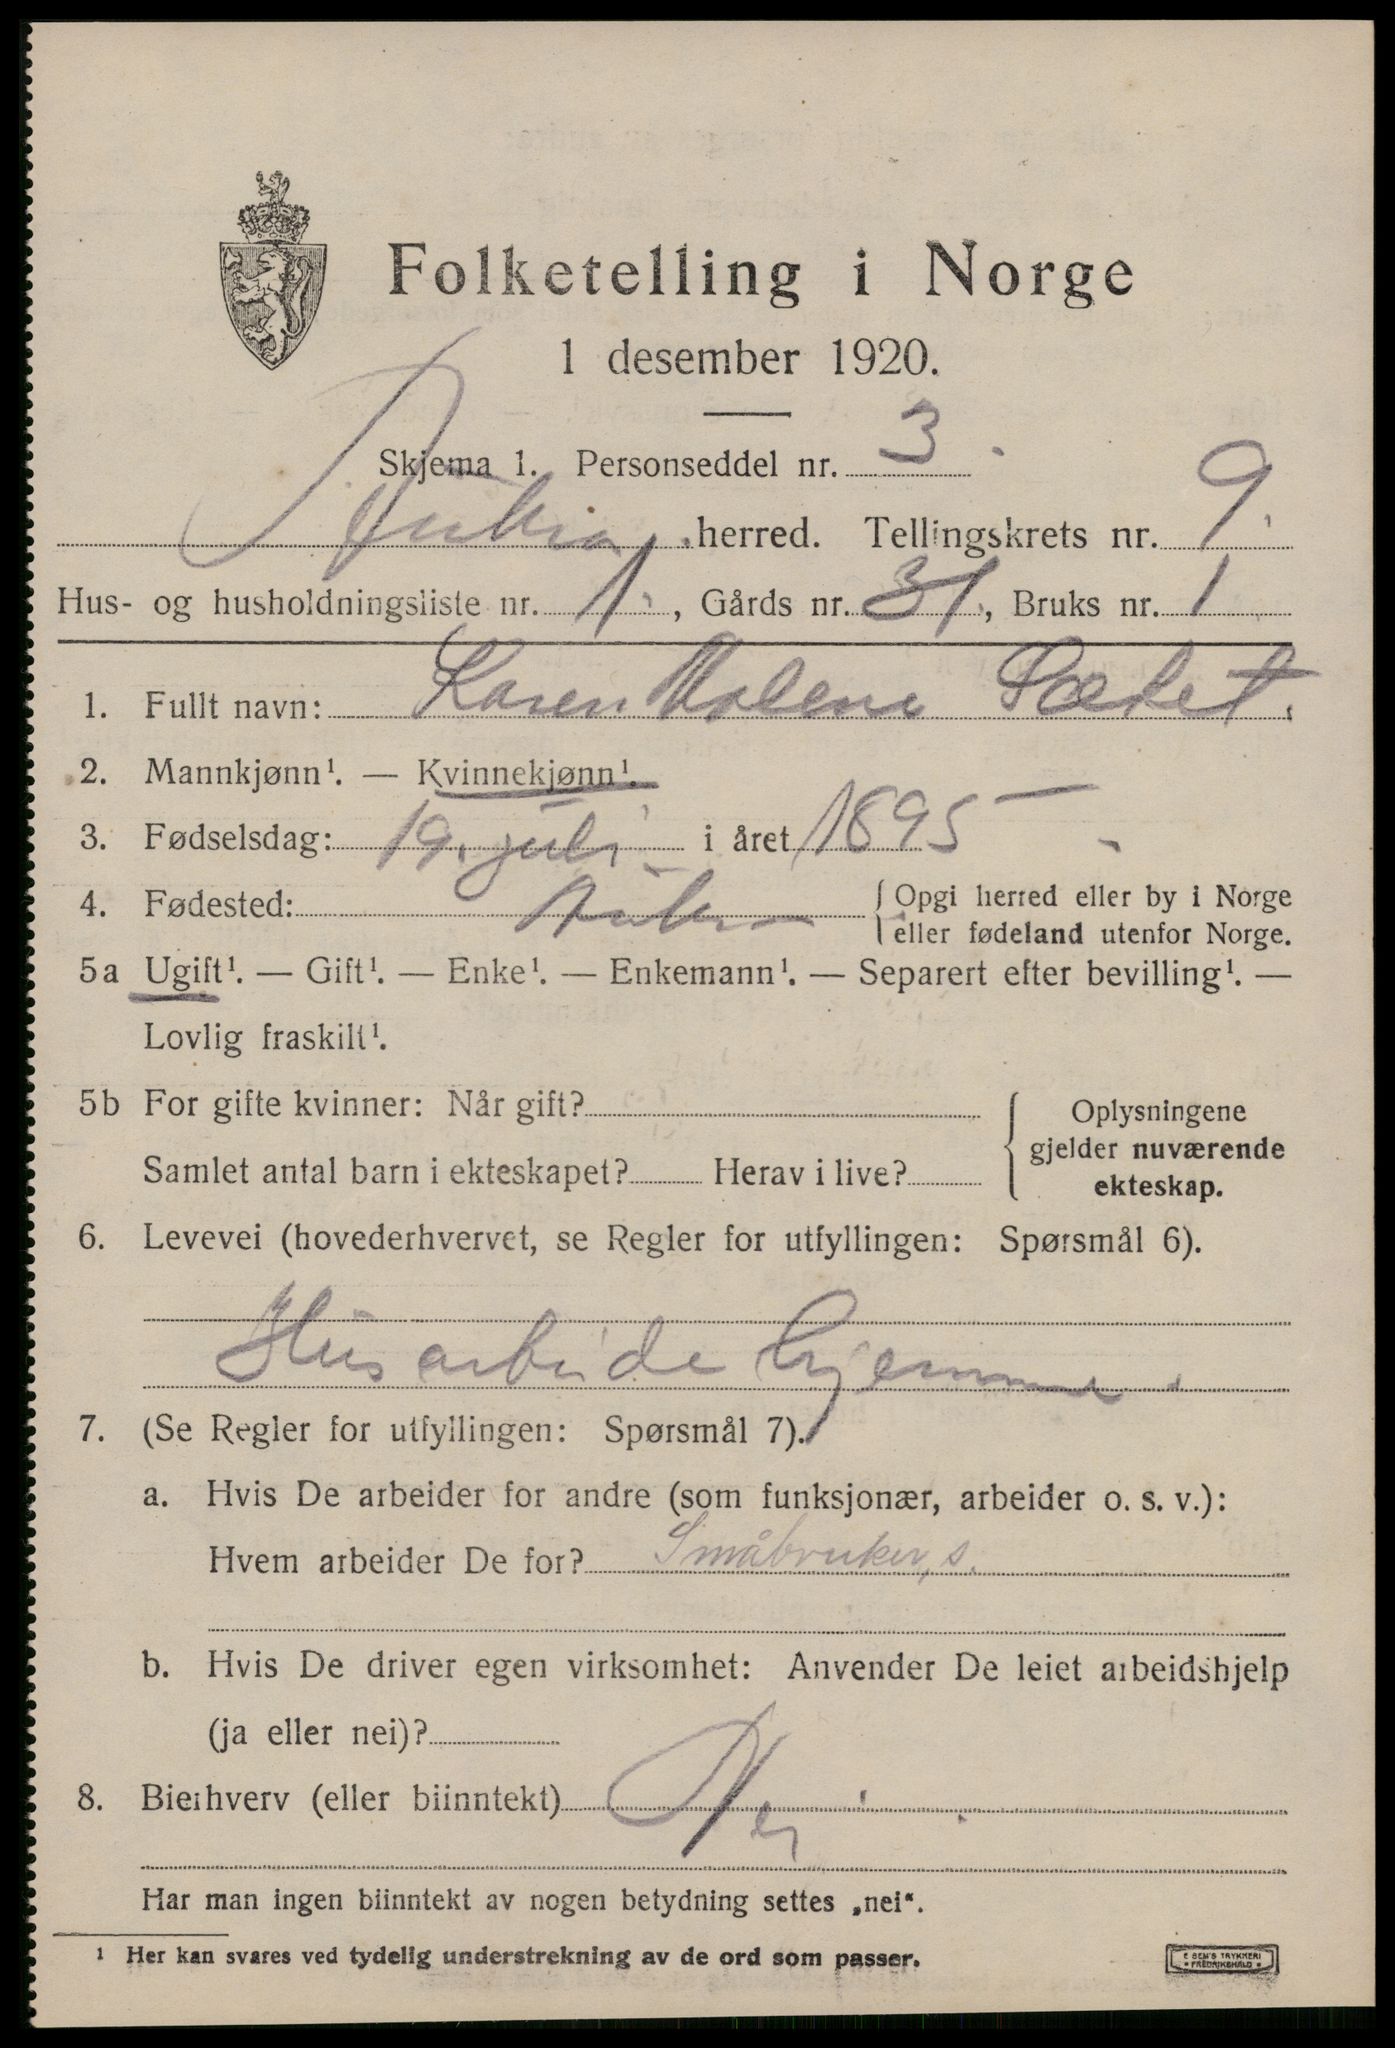 Folketelling i Norge
1 desember 1920.
Skjema 1. Personseddel nr. 3.
Aukra herred. Tellingskrets nr. 9.
Hus- og husholdningsliste nr. 1., Gårds nr. 31., Bruks nr. 1
1. Fullt navn: Karen Malene Sætet.
2. Mannkjønn¹. — Kvinnekjønn¹.
3. Fødselsdag: 19. juli i året 1895
4. Fødested: Aukra {Opgi herred eller by i Norge
eller fødeland utenfor Norge.
5a Ugift¹. — Gift¹. — Enke¹. — Enkemann¹. — Separert efter bevilling¹. —
Lovlig fraskilt¹.
5b For gifte kvinner: Når gift?
Samlet antal barn i ekteskapet? Herav i live?
Oplysningene
gjelder nuværende
ekteskap.
6. Levevei (hovederhvervet, se Regler for utfyllingen: Spørsmål 6).
Husarbeide hjemme.
7. (Se Regler for utfyllingen: Spørsmål 7).
a. Hvis De arbeider for andre (som funksjonær, arbeider o. s. v.):
Hvem arbeider De for? Småbruker, s.
b. Hvis De driver egen virksomhet: Anvender De leiet arbeidshjelp
(ja eller nei)?
8. Bierhverv (eller biinntekt) Nei.
Har man ingen biinntekt av nogen betydning settes „nei“.
¹ Her kan svares ved tydelig understrekning av de ord som passer.
E SEM'S TRYKKERI
FREDRIKSHALD